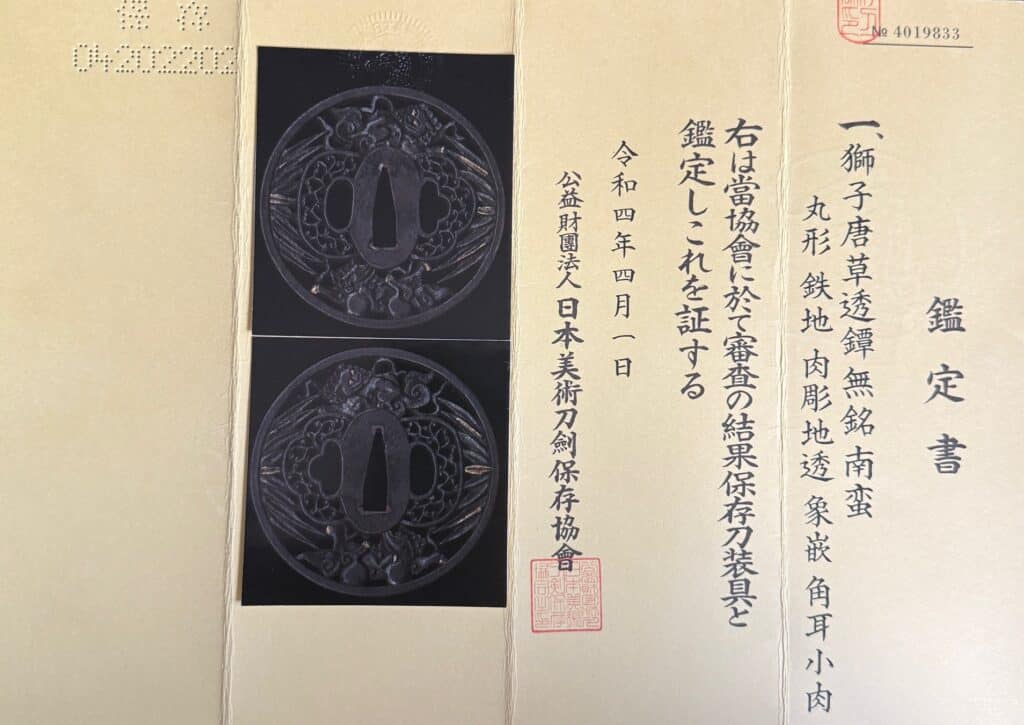 № 4019833
鑑定書
一、獅子唐草透鐔無銘南蛮
丸形 鉄地 肉彫地透 象嵌 角耳小肉
右は當協會に於て審査の結果保存刀装具と
鑑定しこれを証する
令和四年四月一日
公益財團法人日本美術刀劍保存協會
保存